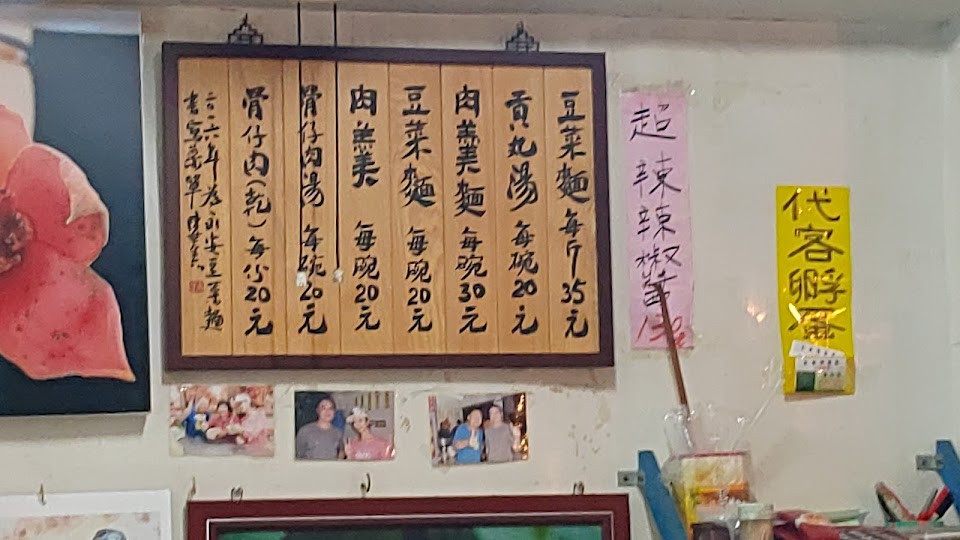 豆菜麵 每斤35元
貢丸湯 每碗20元
肉羹麵 每碗30元
豆菜麵 每碗20元
肉羹 每碗20元
骨仔肉湯 每碗20元
骨仔肉(乾)每份20元
二〇一六年為永安豆菜麵
書寫菜單
超辣辣椒醬
代客孵蛋